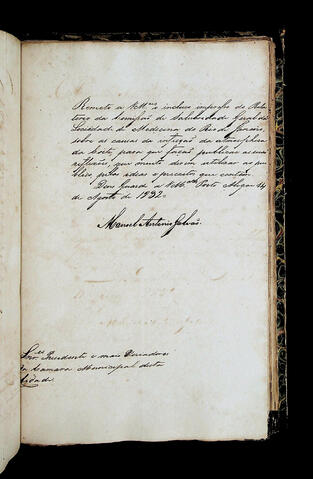 Remeto a VM.ces o incluso impresso do Rela-
torio da Comissão de Salubridade Geral da
Sociedade de Medicina do Rio de Janeiro,
sobre as causas da infecção da atmosphera
da Corte, para que fação publicar as suas
reflexões, que muito devem interessar ao pu-
blico, pelas ideas e preceitos que contém.
Deos Guarde a VM.ces Porto Alegre 14
de Agosto de 1832.
Manoel Antonio Galvão.
Snr.es Presidente e mais Vereadores
da Camara Municipal desta
Cidade.